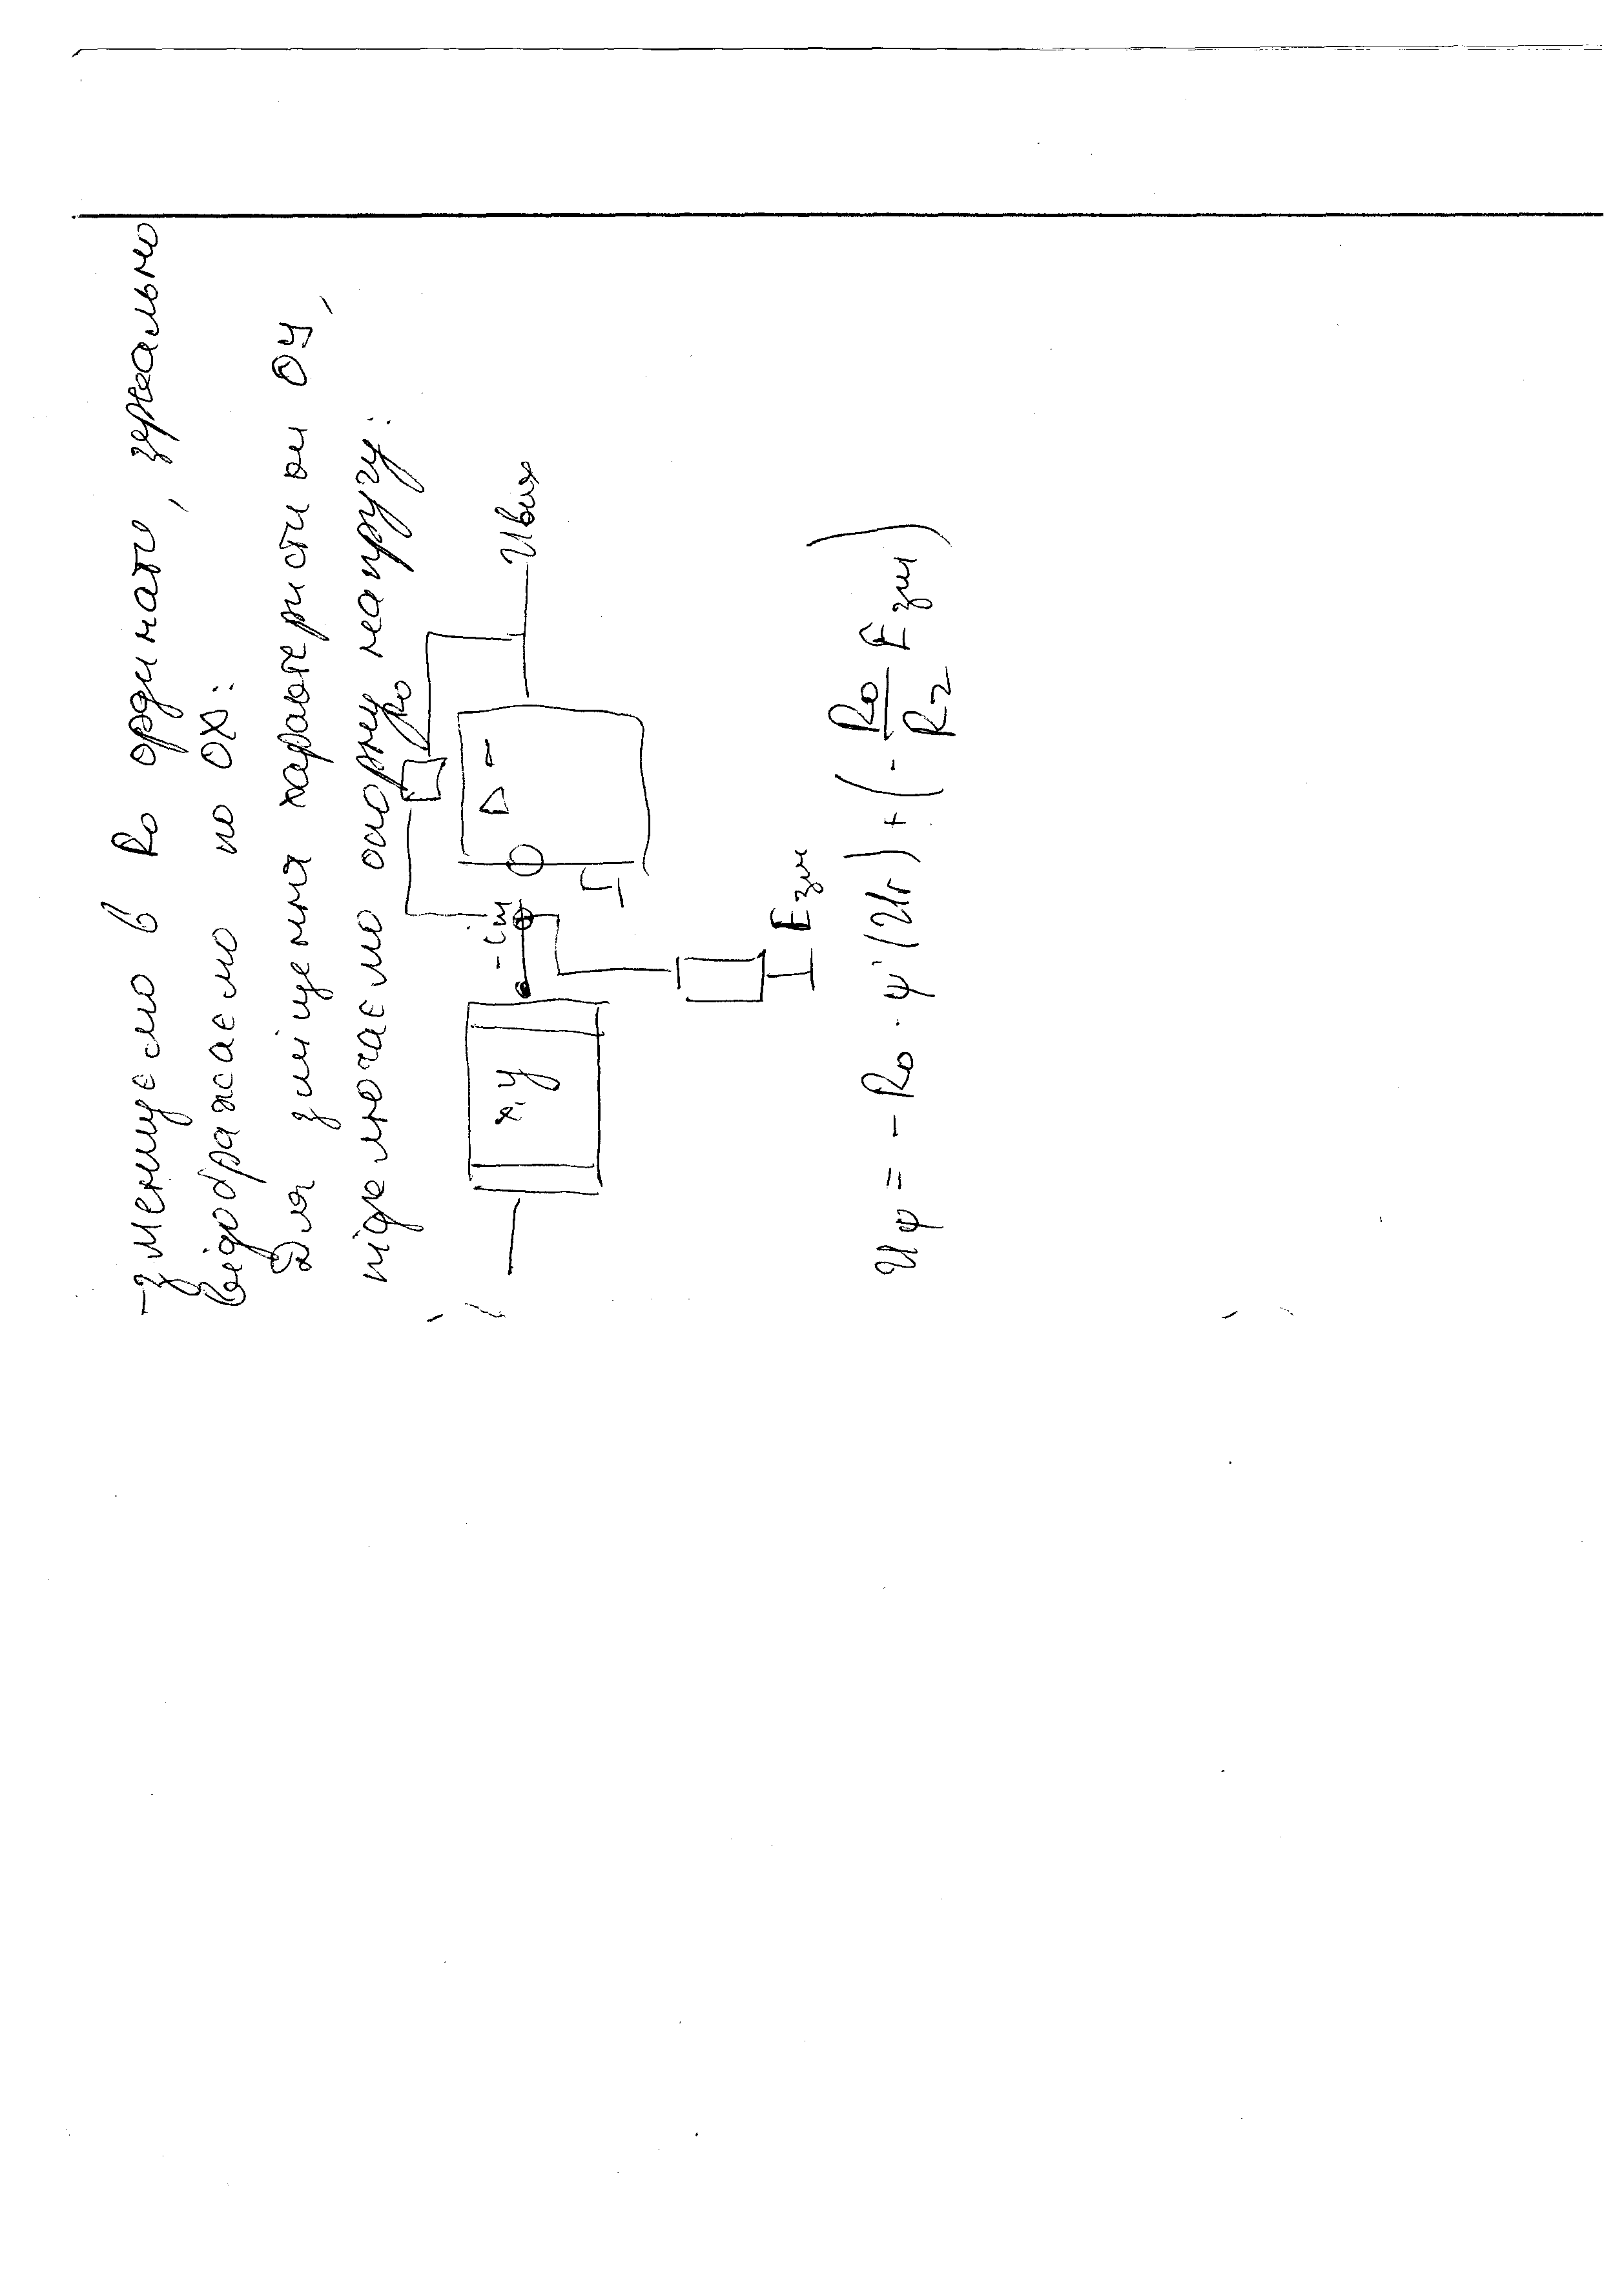 - зменшуємо в R₀ ординату, зеркально
відображаємо по OX:
Для зміщення характеристи ои ОУ,
підключаємо опорну напругу:
R₀
Uвих
-iм
▷ -
x, y
Eзм
Uψ = - R₀ · ψ'(U₁) + (- R₀/R₂ Eзм)